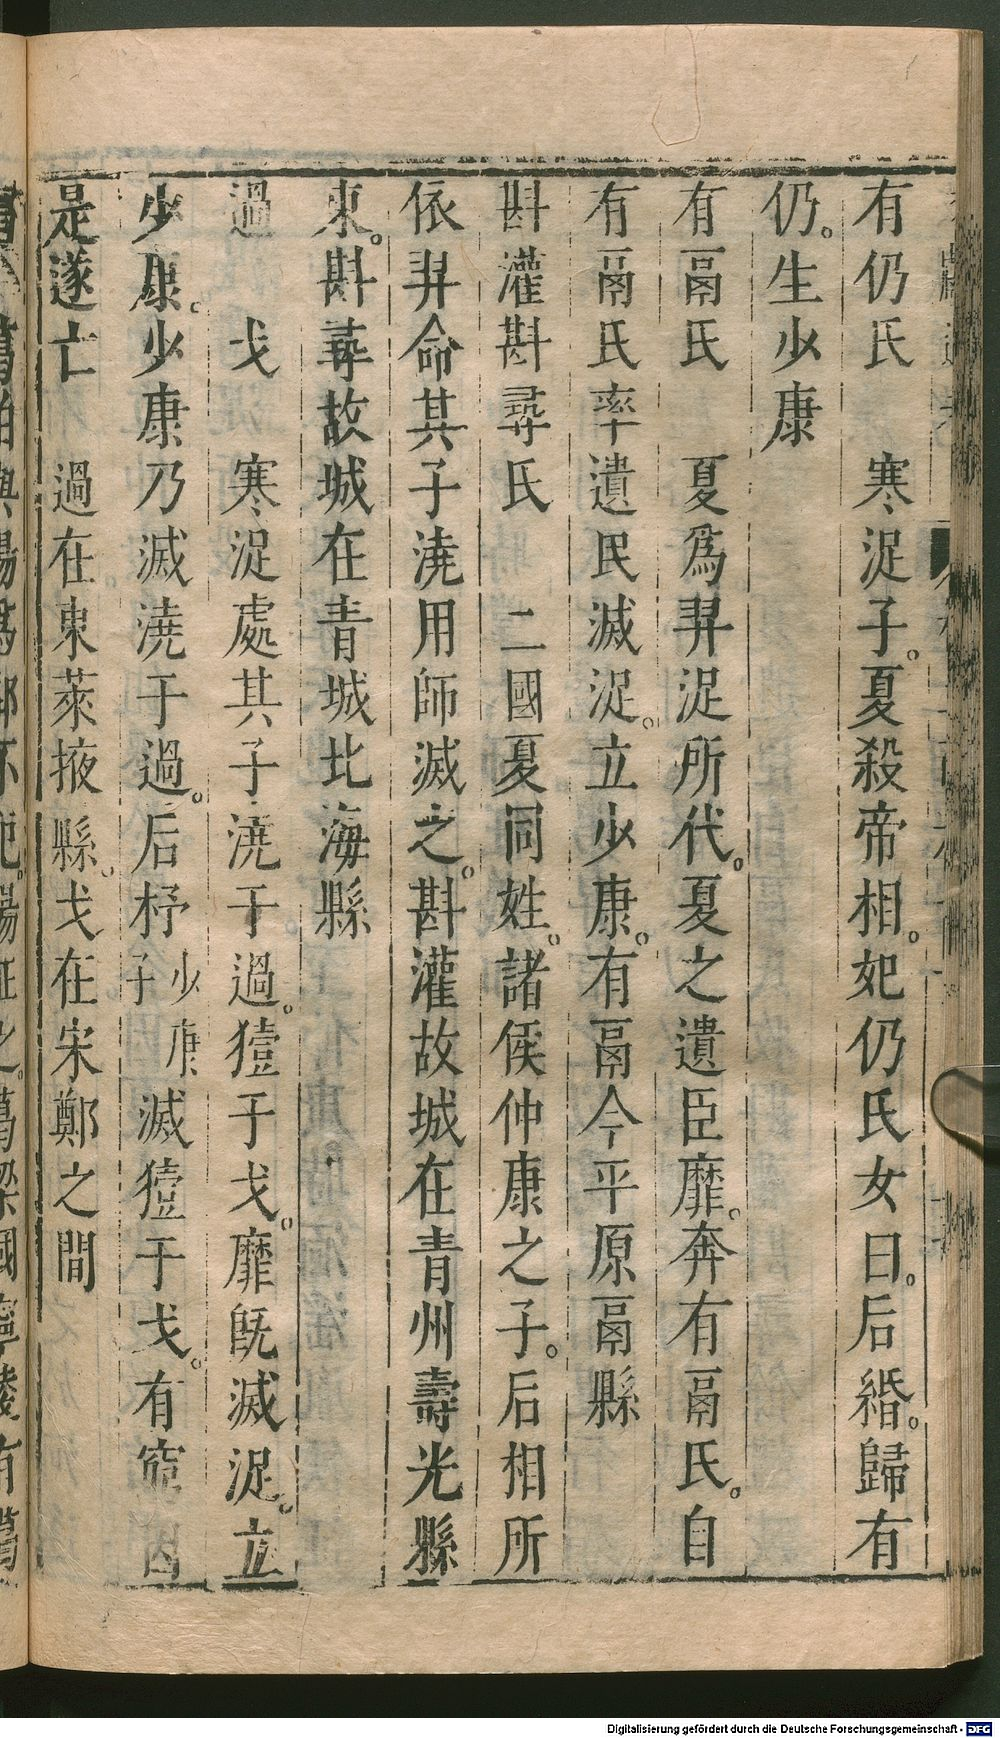 有仍氏　寒浞子。夏殺帝相。妃仍氏女曰。后緡。歸有
仍。生少康
有鬲氏　夏爲羿浞所代。夏之遺臣靡。奔有鬲氏。自
有鬲氏率遺民滅浞。立少康。有鬲今平原鬲縣
斟灌斟尋氏　二國夏同姓。諸侯仲康之子。后相所
依羿命其子澆用師滅之。斟灌故城在青州壽光縣
東。斟尋故城在青城北海縣
過　戈　寒浞處其子澆于過。豷于戈。靡旣滅浞。立
少康。少康乃滅澆于過。后杼少康子滅豷于戈。有窮因
是遂亡　過在東萊掖縣。戈在宋鄭之間
Digitalisierung gefördert durch die Deutsche Forschungsgemeinschaft - DFG